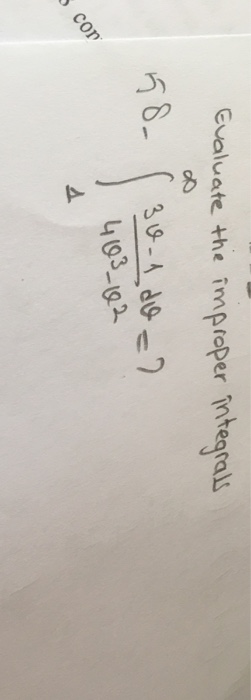 s con
Evaluate the improper integrals
58- ∫₁^∞ (3θ-1)/(4θ³-θ²) dθ = ?